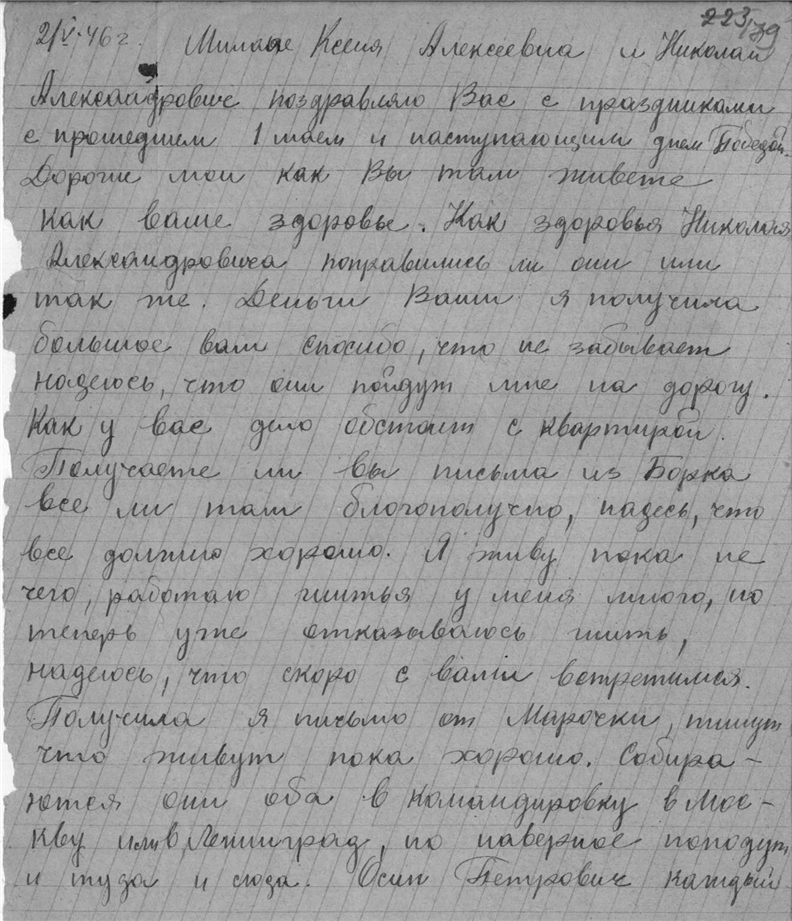 223/79
2/V-46 г. Милые Ксения Алексеевна и Николай
Александрович поздравляю Вас с праздниками
с прошедшем 1 маем и наступающим днем Победы.
Дорогие мои как Вы там живете
как ваше здоровье. Как здоровья Николая
Александровича поправились ли они или
так же. Деньги Ваши я получила
большое вам спосибо, что не забывает
надеюсь, что они пойдут мне на дорогу.
Как у вас дело обстоит с квартирой.
Получаете ли вы письма из Борка
все ли там благополучно, надесь, что
все должно хорошо. Я живу пока не
чего, работаю шитья у меня много, но
теперь уже отказываюсь шить,
надеюсь, что скоро с вами встретимся.
Получила я письмо от Марочки, пишут
что живут пока хорошо. Собира-
ются они оба в командировку в Мос-
кву или в Ленинград, но наверное попадут
и туда и сюда. Осип Петрович каждый